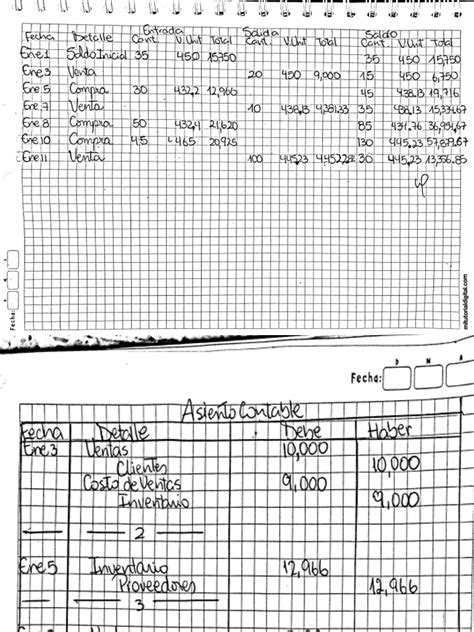 Entrada Salida Saldo
Fecha Detalle Cant. V.Unt Total Cant. V.Unt Total Cant. V.Unt Total
Ene 1 Saldo Inicial 35 450 15750 35 450 15750
Ene 3 Venta 20 450 9,000 15 450 6,750
Ene 5 Compra 30 432,2 12,966 45 438.13 19,716
Ene 7 Venta 10 438,13 4,381.33 35 438.13 15,334.67
Ene 8 Compra 50 432,4 21,620 85 434.76 36,954.67
Ene 10 Compra 45 465 20,925 130 445.23 57,879.67
Ene 11 Venta 100 445.23 30 445.23 13,356.85
Fecha:
mitutorialdigital.com
D N A
Fecha:
Asiento Contable
Fecha Detalle Debe Haber
Ene 3 Ventas 10,000
Clientes 10,000
Costo de Ventas 9,000
Inventario 9,000
2
Ene 5 Inventario 12,966
Proveedores 12,966
3